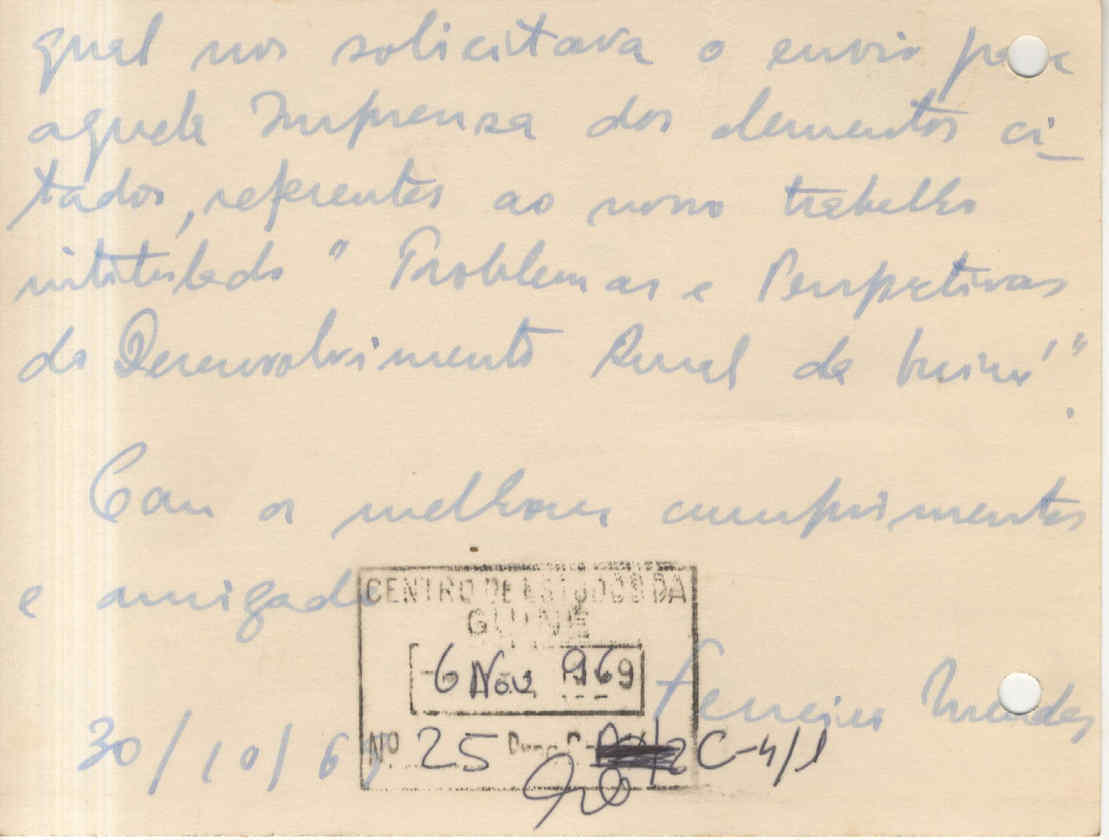 qual nos solicitava o envio para
aquela Imprensa dos elementos ci-
tados, referentes ao nosso trabalho
intitulado "Problemas e Perspetivas
do Desenvolvimento Rural da Guiné".
Com os melhores cumprimentos
e amizade
CENTRO DE ESTUDOS DA
GUINÉ
-6 Nov. 1969
Ferreira Mendes
30/10/69
Nº 25 2C-4/1